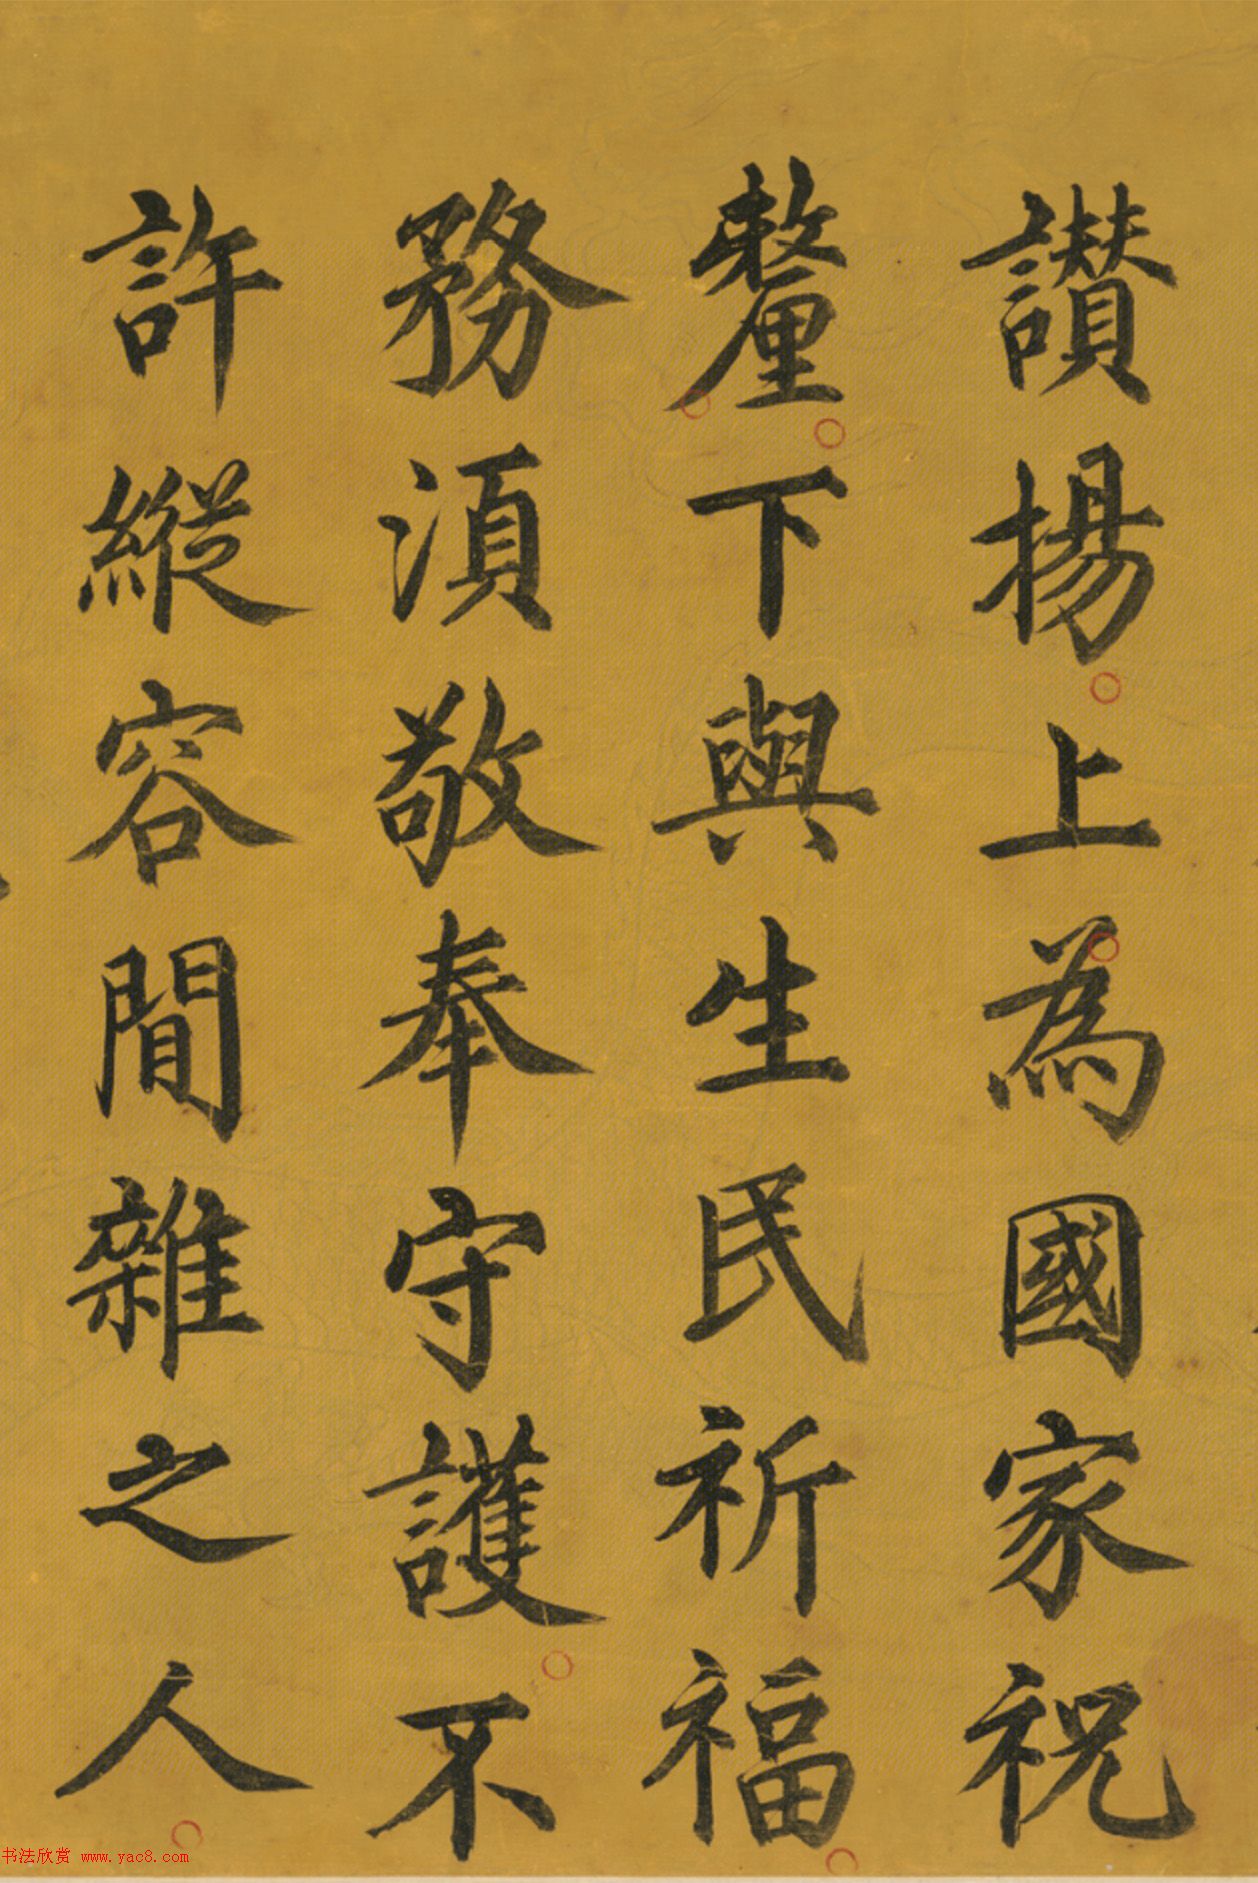 讃揚上為國家祝
釐下與生民祈福
務須敬奉守護不
許縱容閒雜之人
书法欣赏 www.yac8.com